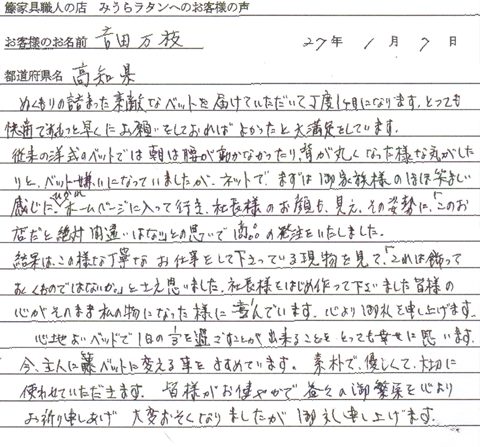 籐家具職人の店 みうらラタンへのお客様の声
お客様のお名前 吉田万枝 27年 1月 7日
都道府県名 高知県
ぬくもりの詰まった素敵なベットを届けていただいて丁度1ヶ月になります。とっても
快適でもっと早くにお願いをしておればよかったと大満足をしています。
従来の洋式のベットでは朝は腰が動かなかったり、背が丸くなった様な気がした
りと、ベット嫌いになっていましたが、ネットでまずは御家族様のほほ笑ましい
感じにひかれホームページに入って行き、社長様のお顔も見え、その姿勢に、「このお
店だと絶対間違いはない」との思いで の発注をいたしました。
結果は、この様な丁寧なお仕事をして下さっている現物を見て、「これは飾って
おくものではないか。」と迄思いました。社長様をはじめ作って下さいました皆様の
心がそのまま私の物になった様に喜んでいます。心より御礼を申し上げます。
心地よいベッドで1日の を過ごすことが出来ることをとっても幸せに思います。
今、主人に籐ベットに変える事をすすめています。 素朴で、優しくて、大切に
使わせていただきます。 皆様がお健やかで益々の御繁栄を心より
お祈り申しあげ 大変おそくなりましたが御礼申し上げます。